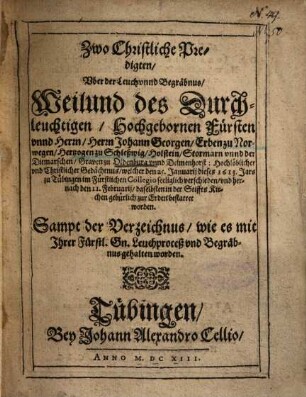 Zwo Christliche Pre⸗
digten/
Vber der Leuch vnnd Begräbnus/
Weilund des Durch⸗
leuchtigen/ Hochgebornen Fürsten
vnnd Herrn/ Herrn Johann Georgen/ Erben zu Nor⸗
wegen/ Hertzogen zu Schleßwig/ Holstein/ Stormarn vnnd der
Ditmarschen/ Graven zu Oldenburg vnnd Delmenhorst: Hochlöblicher
vnd Christlicher Gedächtnus/ welcher den 25. Januarij dieses 1613. Jars
zu Tübingen im Fürstlichen Collegio seeliglich verschieden/ vnd her⸗
nach den 11. Februarij/ daselbsten in der Stiffts Kir⸗
chen gebürlich zur Erden bestattet
worden.
Sampt der Verzeichnus/ wie es mit
Ihrer Fürstl. Gn. Leuchproceß vnd Begräb⸗
nus gehalten worden.
Tübingen/
Bey Johann Alexandro Cellio/
ANNO M. DC XIII.